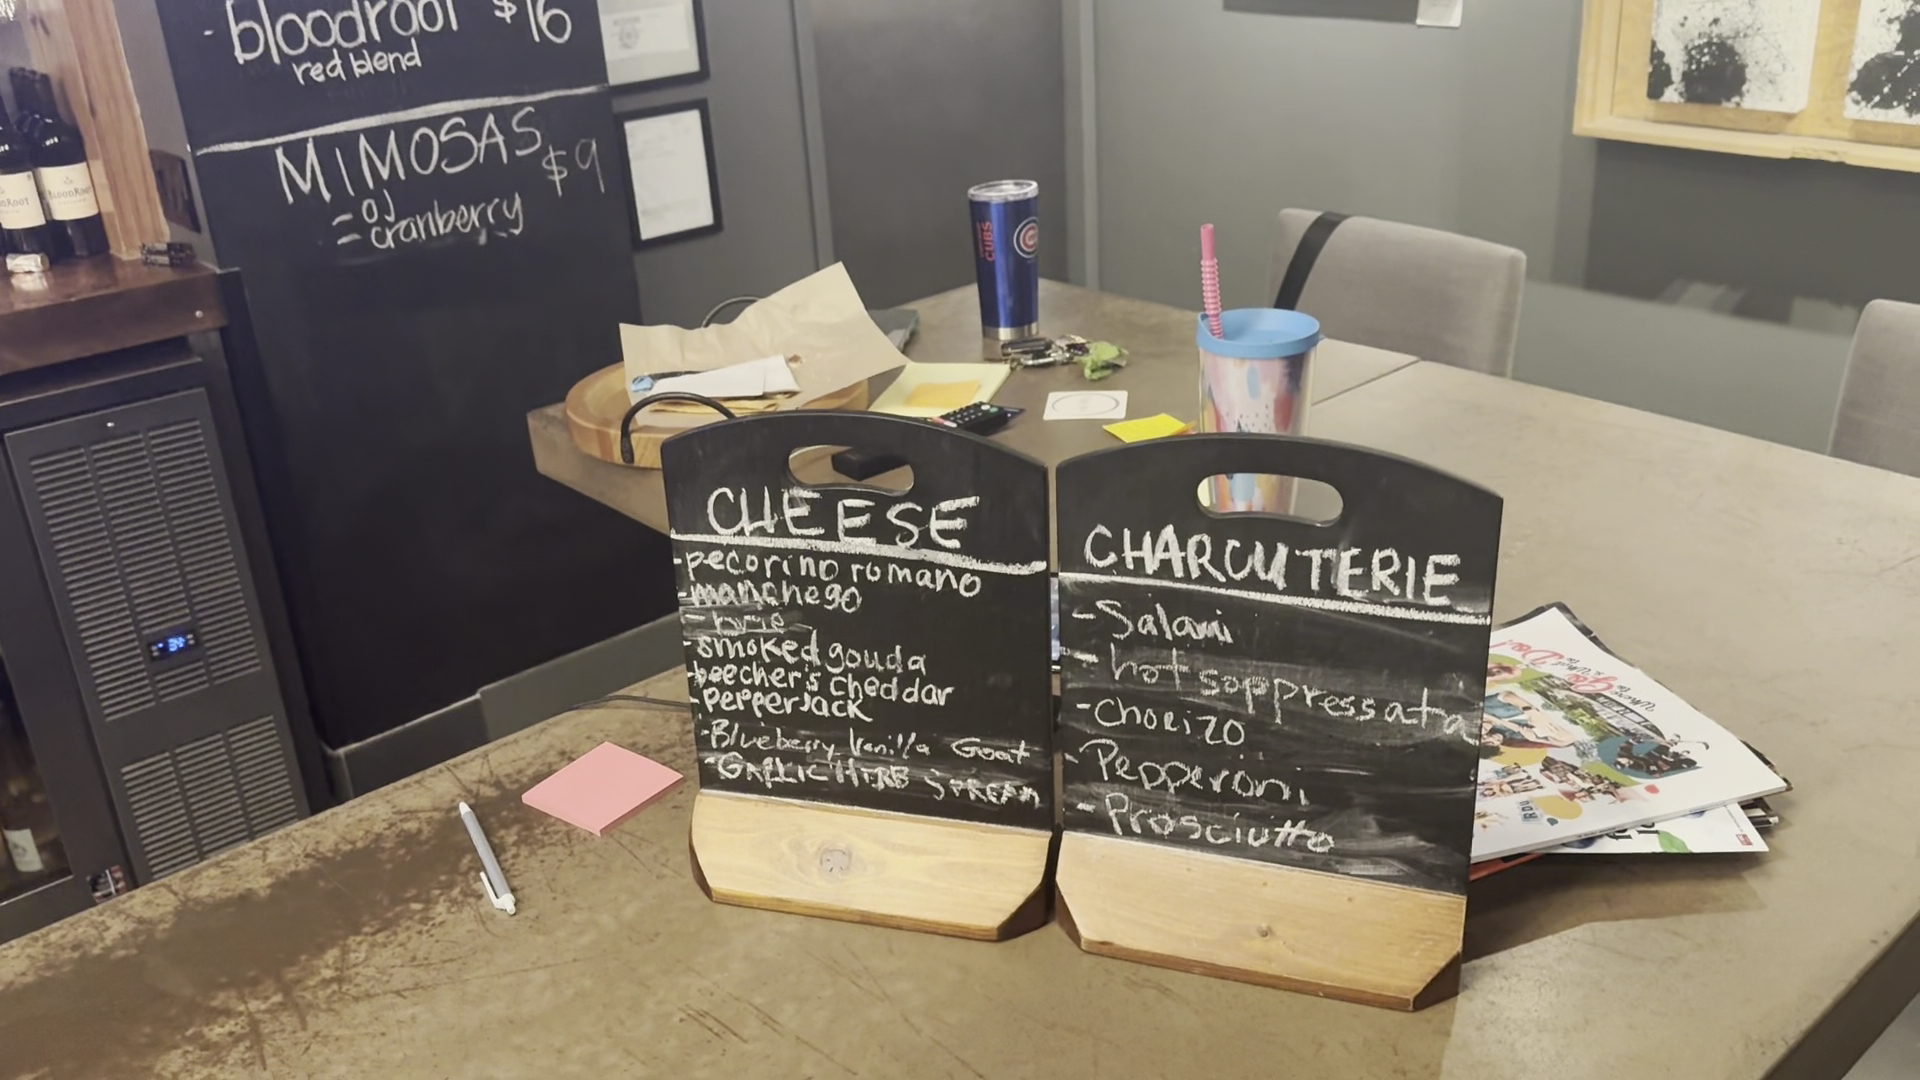 - bloodroot $16
red blend
MIMOSAS $9
= OJ
= cranberry
BLOODROOT
CUBS
CHEESE
-pecorino romano
-manchego
- brie
-smoked gouda
-beecher's cheddar
-Pepperjack
-Blueberry Vanilla Goat
-GARLIC HERB
CHARCUTERIE
-Salami
- hot soppressata
-Chorizo
-Pepperoni
-Prosciutto